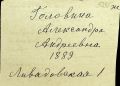 Головина
Александра
Андреевна
1889
Ливадовская 1